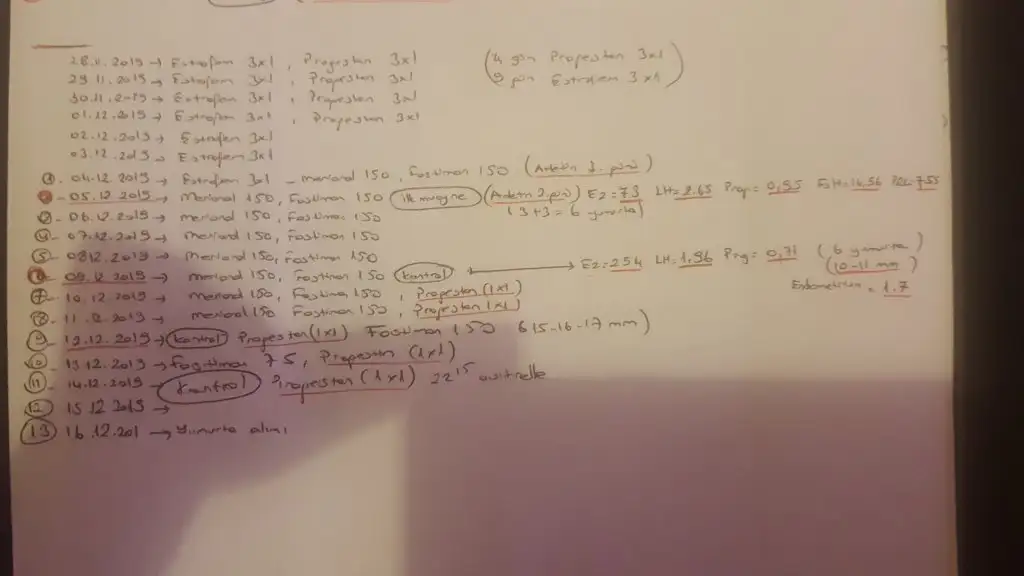 28.11.2019 → Estrofem 3x1, Progestan 3x1 (4 gün Progestan 3x1
29.11.2019 → Estrofem 3x1, Progestan 3x1 9 gün Estrofem 3x1)
30.11.2019 → Estrofem 3x1, Progestan 3x1
01.12.2019 → Estrofem 3x1, Progestan 3x1
02.12.2019 → Estrofem 3x1
03.12.2019 → Estrofem 3x1
1- 04.12.2019 → Estrofem 3x1 - Merional 150, Fostimon 150 (Adetin 1. günü)
05.12.2019 → Merional 150, Fostimon 150 (Adetin 2. günü) E2 = 73 LH = 2.65 Prog = 0,55 FSH = 14,56 PRL = 7.55
06.12.2019 → Merional 150, Fostimon 150 (3+3 = 6 yumurta)
4- 07.12.2019 → Merional 150, Fostimon 150
5- 08.12.2019 → Merional 150, Fostimon 150
6- 09.12.2019 → Merional 150, Fostimon 150 kontrol → E2 = 254 LH = 1,96 Prg = 0,71 (6 yumurta)
(10-11 mm)
7- 10.12.2019 → Merional 150, Fostimon 150, Progestan (1x1) Endometrium = 1.7
8- 11.12.2019 → Merional 150, Fostimon 150, Progestan (1x1)
9- 12.12.2019 → kontrol Progestan (1x1) Fostimon 150 6 15-16-17 mm)
10- 13.12.2019 → Fostimon 75, Progestan (1x1)
11- 14.12.2019 → kontrol Progestan (1x1) 22 15 ovitrelle
12 15.12.2019 →
13 16.12.201 → Yumurta alımı